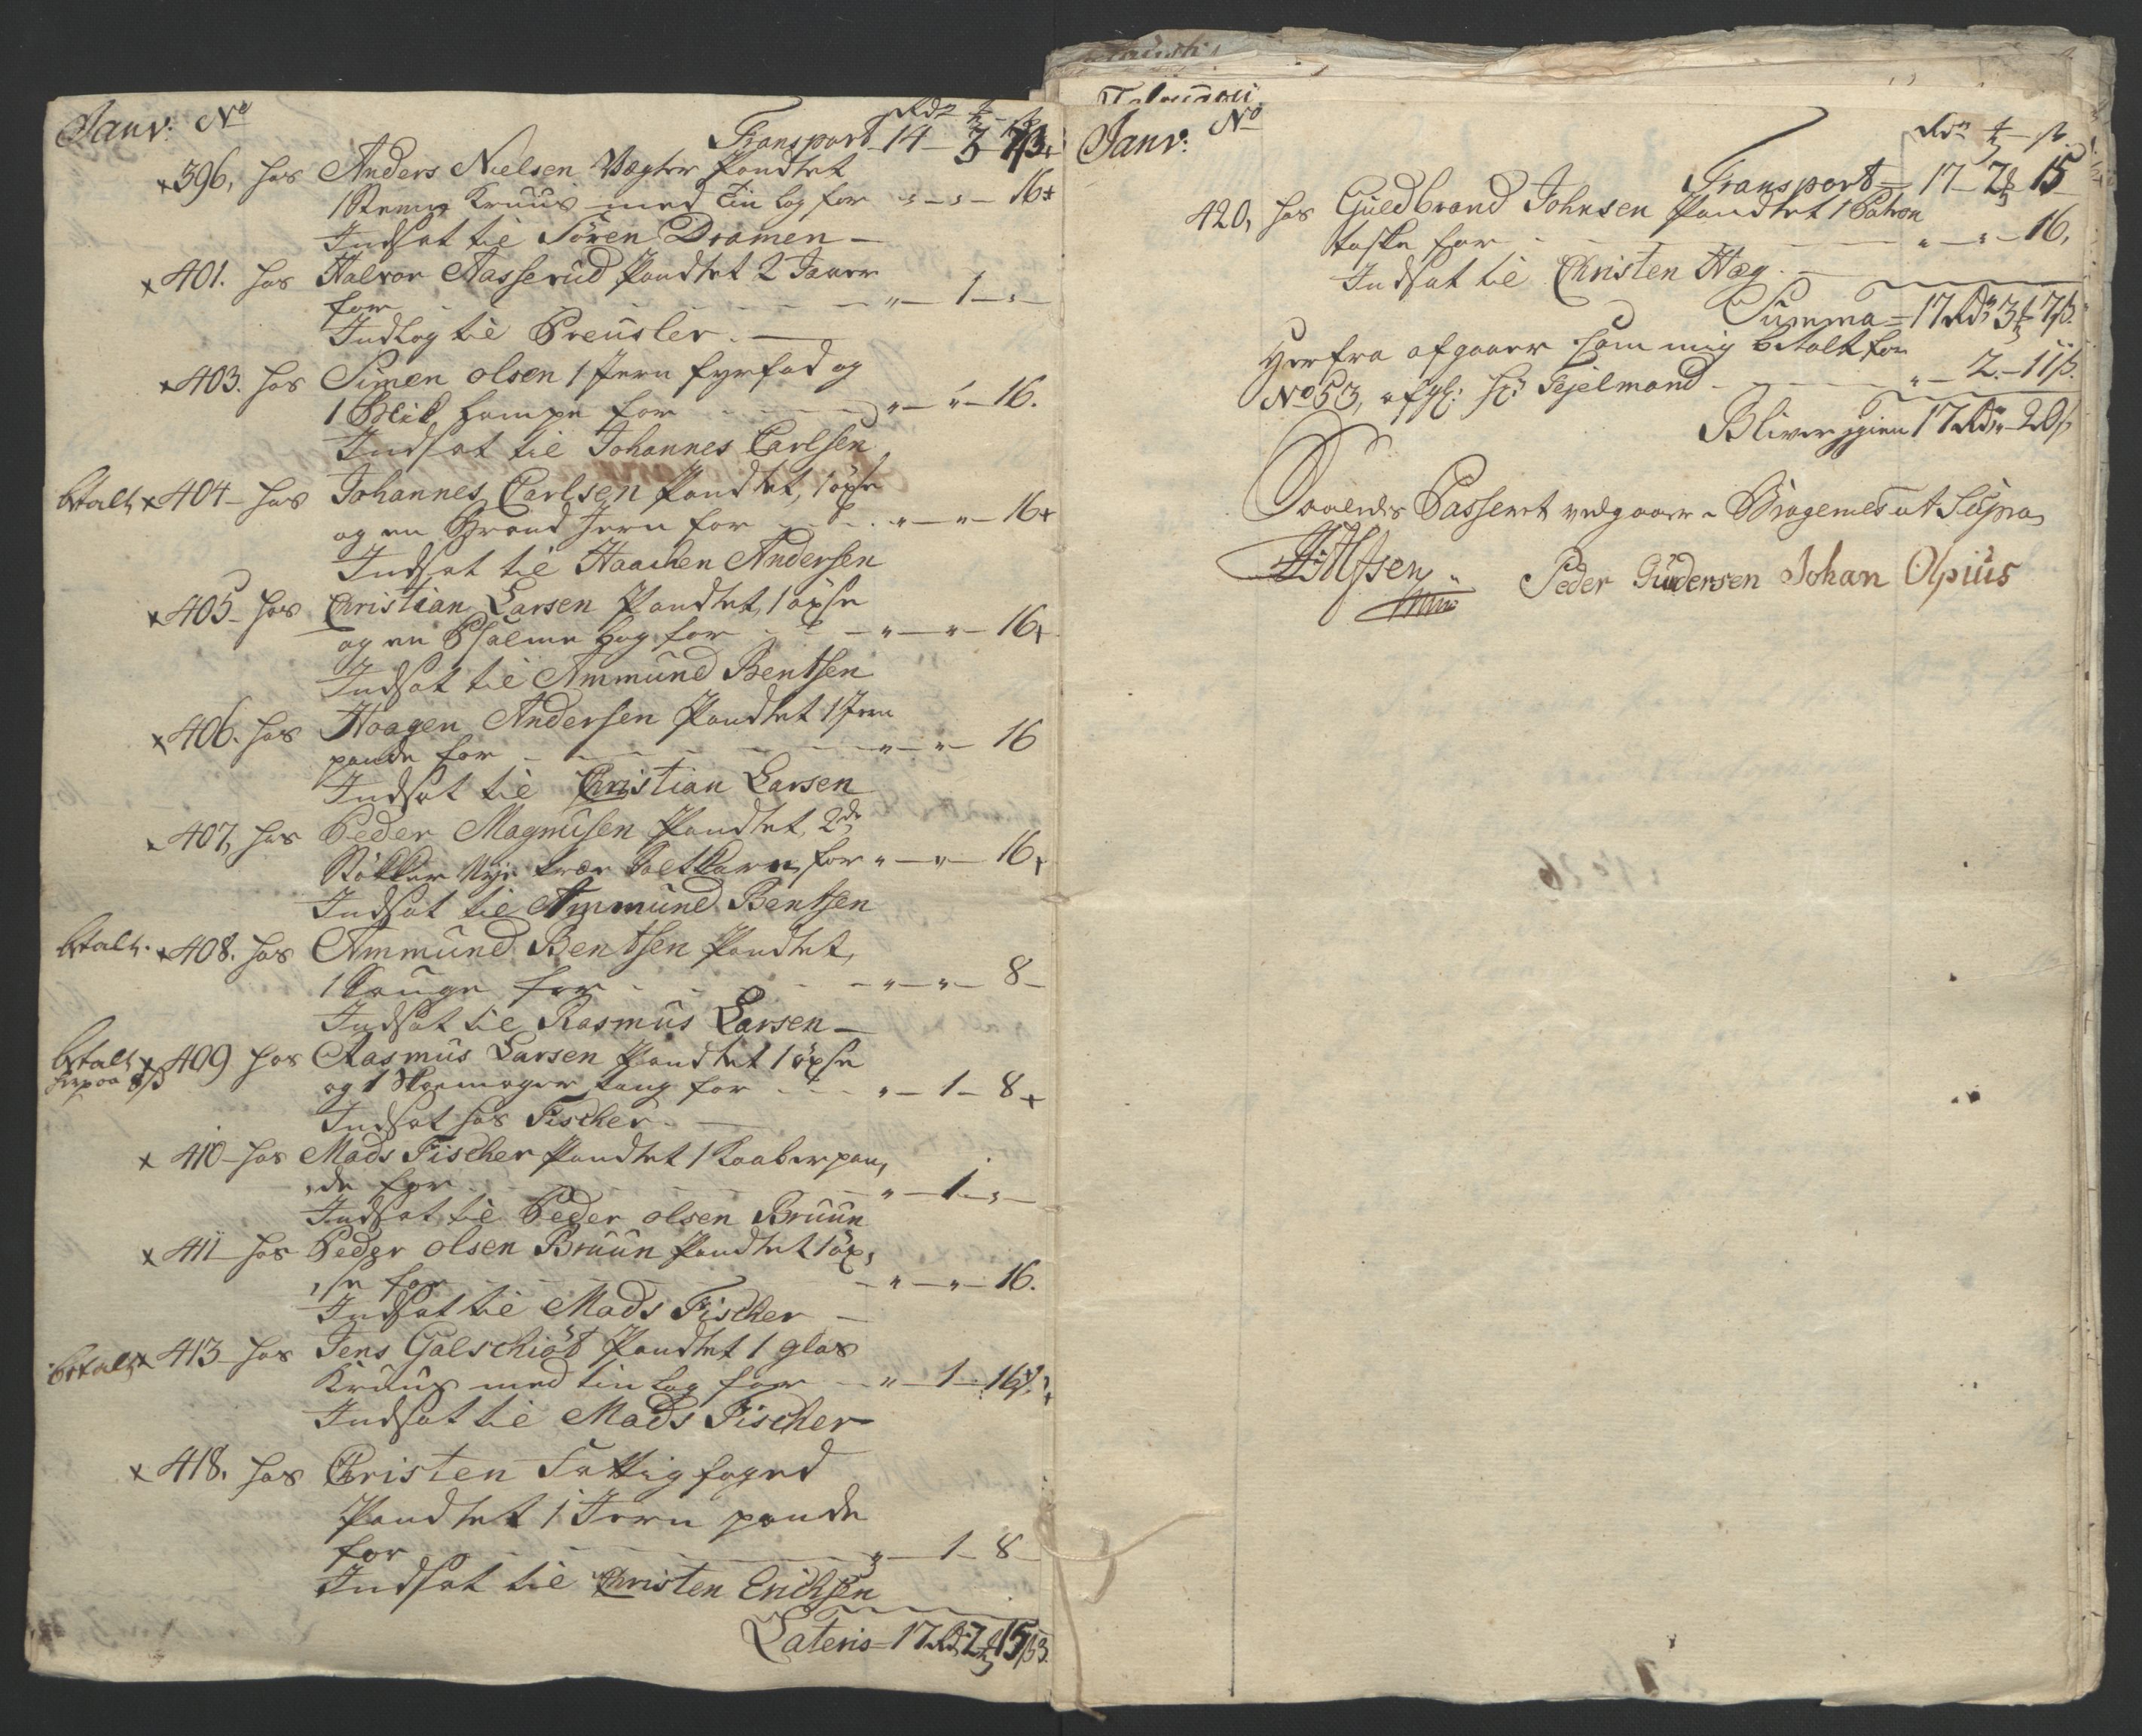 Janv: No
Rdr
Transport 14 - 3 -
396, hos Anders Nielsen Vægter Pandtet
1 Steen Kruus med Tin log for " - " - 16
Indsat til Sören Dramen
401. hos Halvor Aasserud Pandtet 2
for " - 1 - "
Indlog til Preusler.
403. hos Simen olsen 1 Jern fyrfad og
1 Blik Lampe for " - " - 16.
Indsat til Johannes Carlsen
btalt 404 hos Johannes Carlsen Pandtet, 1 öxe
og en Brand Jern for " - " - 16
Indsat til Haachen Andersen
405 hos Christian Larsen Pandtet, 1 öxse
og en Psalme bog for " - " - 16
Indsat til Ammund Bentsen
406. hos Haagen Andersen Pandtet 1 Jern
pande for " - " - 16
Indsat til Christian Larsen
407, hos Peder Magnusen Pandtet, 2de
Støkker Nye for " - " - 16
Indsat til Ammund Bentsen
btalt. 408. hos Ammund Bentsen Pandtet,
1 for " - " - 8
Indsat til Rasmus Larsen
btalt 409 hos Rasmus Larsen Pandtet 1 öxse
herpaa 8 ß og 1 Skoemager tang for " - 1 - 8
Indsat hos Fischer.
410 hos Mads Fischer Pandtet 1 Kaaber pan,
,de for " - 1 - "
Indsat til Peder olsen Bruun
411 hos Peder olsen Bruun Pandtet 1 öx,
,se for " - " - 16.
Indsat til Mads Fischer
betalt 413 hos Jens Galschiöt Pandtet 1 glas
Kruus med tin log for " - 1 - 16 ß.
Indsat til Mads Fischer
418. hos Christen Fattigfoged
Pandtet 1 Jern pande
for " - 1 - 8
Indsat til Christen Erichsen
Lateris = 17 Rdr 2 15 ß
Februarii
Janv: No
Rdr ß
Transport = 17 - 2 - 15
420, hos Guedbrand Johnsen Pandtet 1 Patron
taske for " - " - 16,
Indsat til Christen Hæg.
Summa = 17 Rdr 3 7 ß.
Herfra afgaaer som mig betalt for
No 53, afg: Hr Fejelmand " - 2 - 11 ß.
Bliver igien 17 Rdr " 20 ß
Saaledes Passeret vedgaaer - Bragernes ut Supra,
Peder Gudersen Johan Olpius